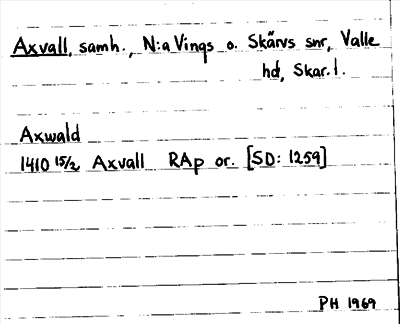 Axvall, samh., N:a Vings o. Skärvs snr, Valle
hd, Skar.l.
Axwald
1410 15/2 Axvall RAp or. [SD: 1259]
PH 1969